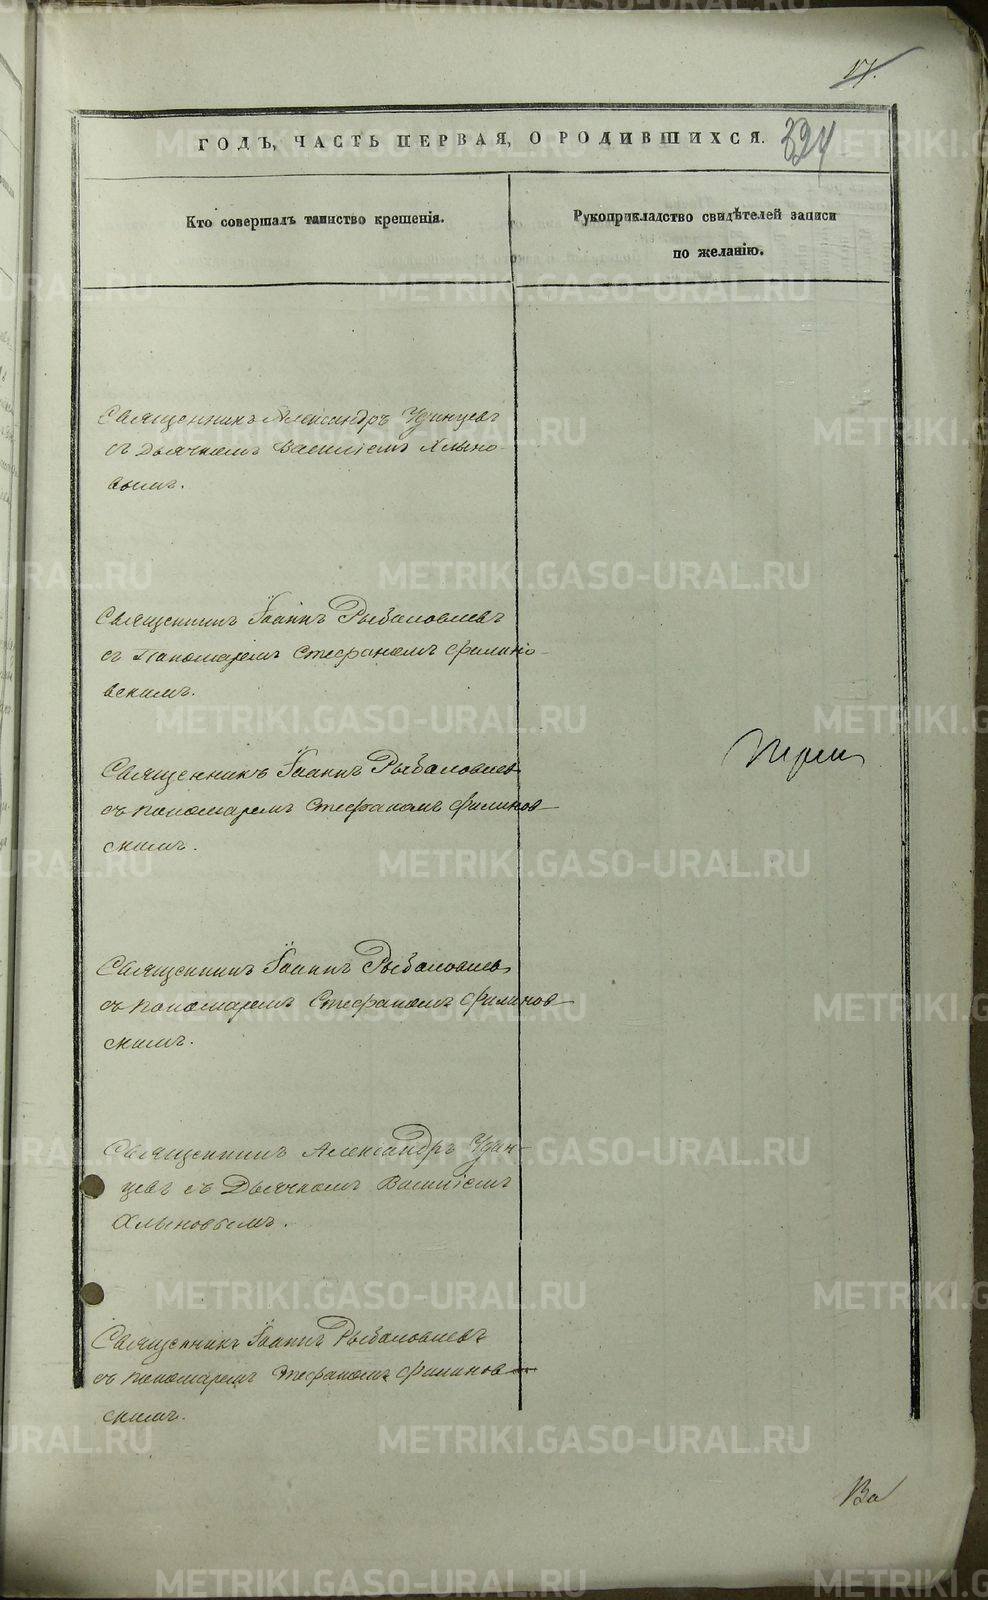 17.
ГОДЪ, ЧАСТЬ ПЕРВАЯ, О РОДИВШИХСЯ.
394
Кто совершалъ таинство крещенія.
Рукоприкладство свидѣтелей записи
по желанію.
Священникъ Александръ Удинцевъ
съ Дьячкомъ Василіемъ Хлыно-
вымъ.
Священникъ Іоаннъ Рыболовлевъ
съ Пономаремъ Стефаномъ Филино-
вскимъ.
Священникъ Іоаннъ Рыболовлевъ
съ пономаремъ Стефаномъ Филинов-
скимъ.
Священникъ Іоаннъ Рыболовлевъ
съ пономаремъ Стефаномъ Филинов-
скимъ.
Священникъ Александръ Удин-
цевъ съ Дьячкомъ Василіемъ
Хлыновымъ.
Священникъ Іоаннъ Рыболовлевъ
съ пономаремъ Стефаномъ Филинов-
скимъ.
METRIKI.GASO-URAL.RU